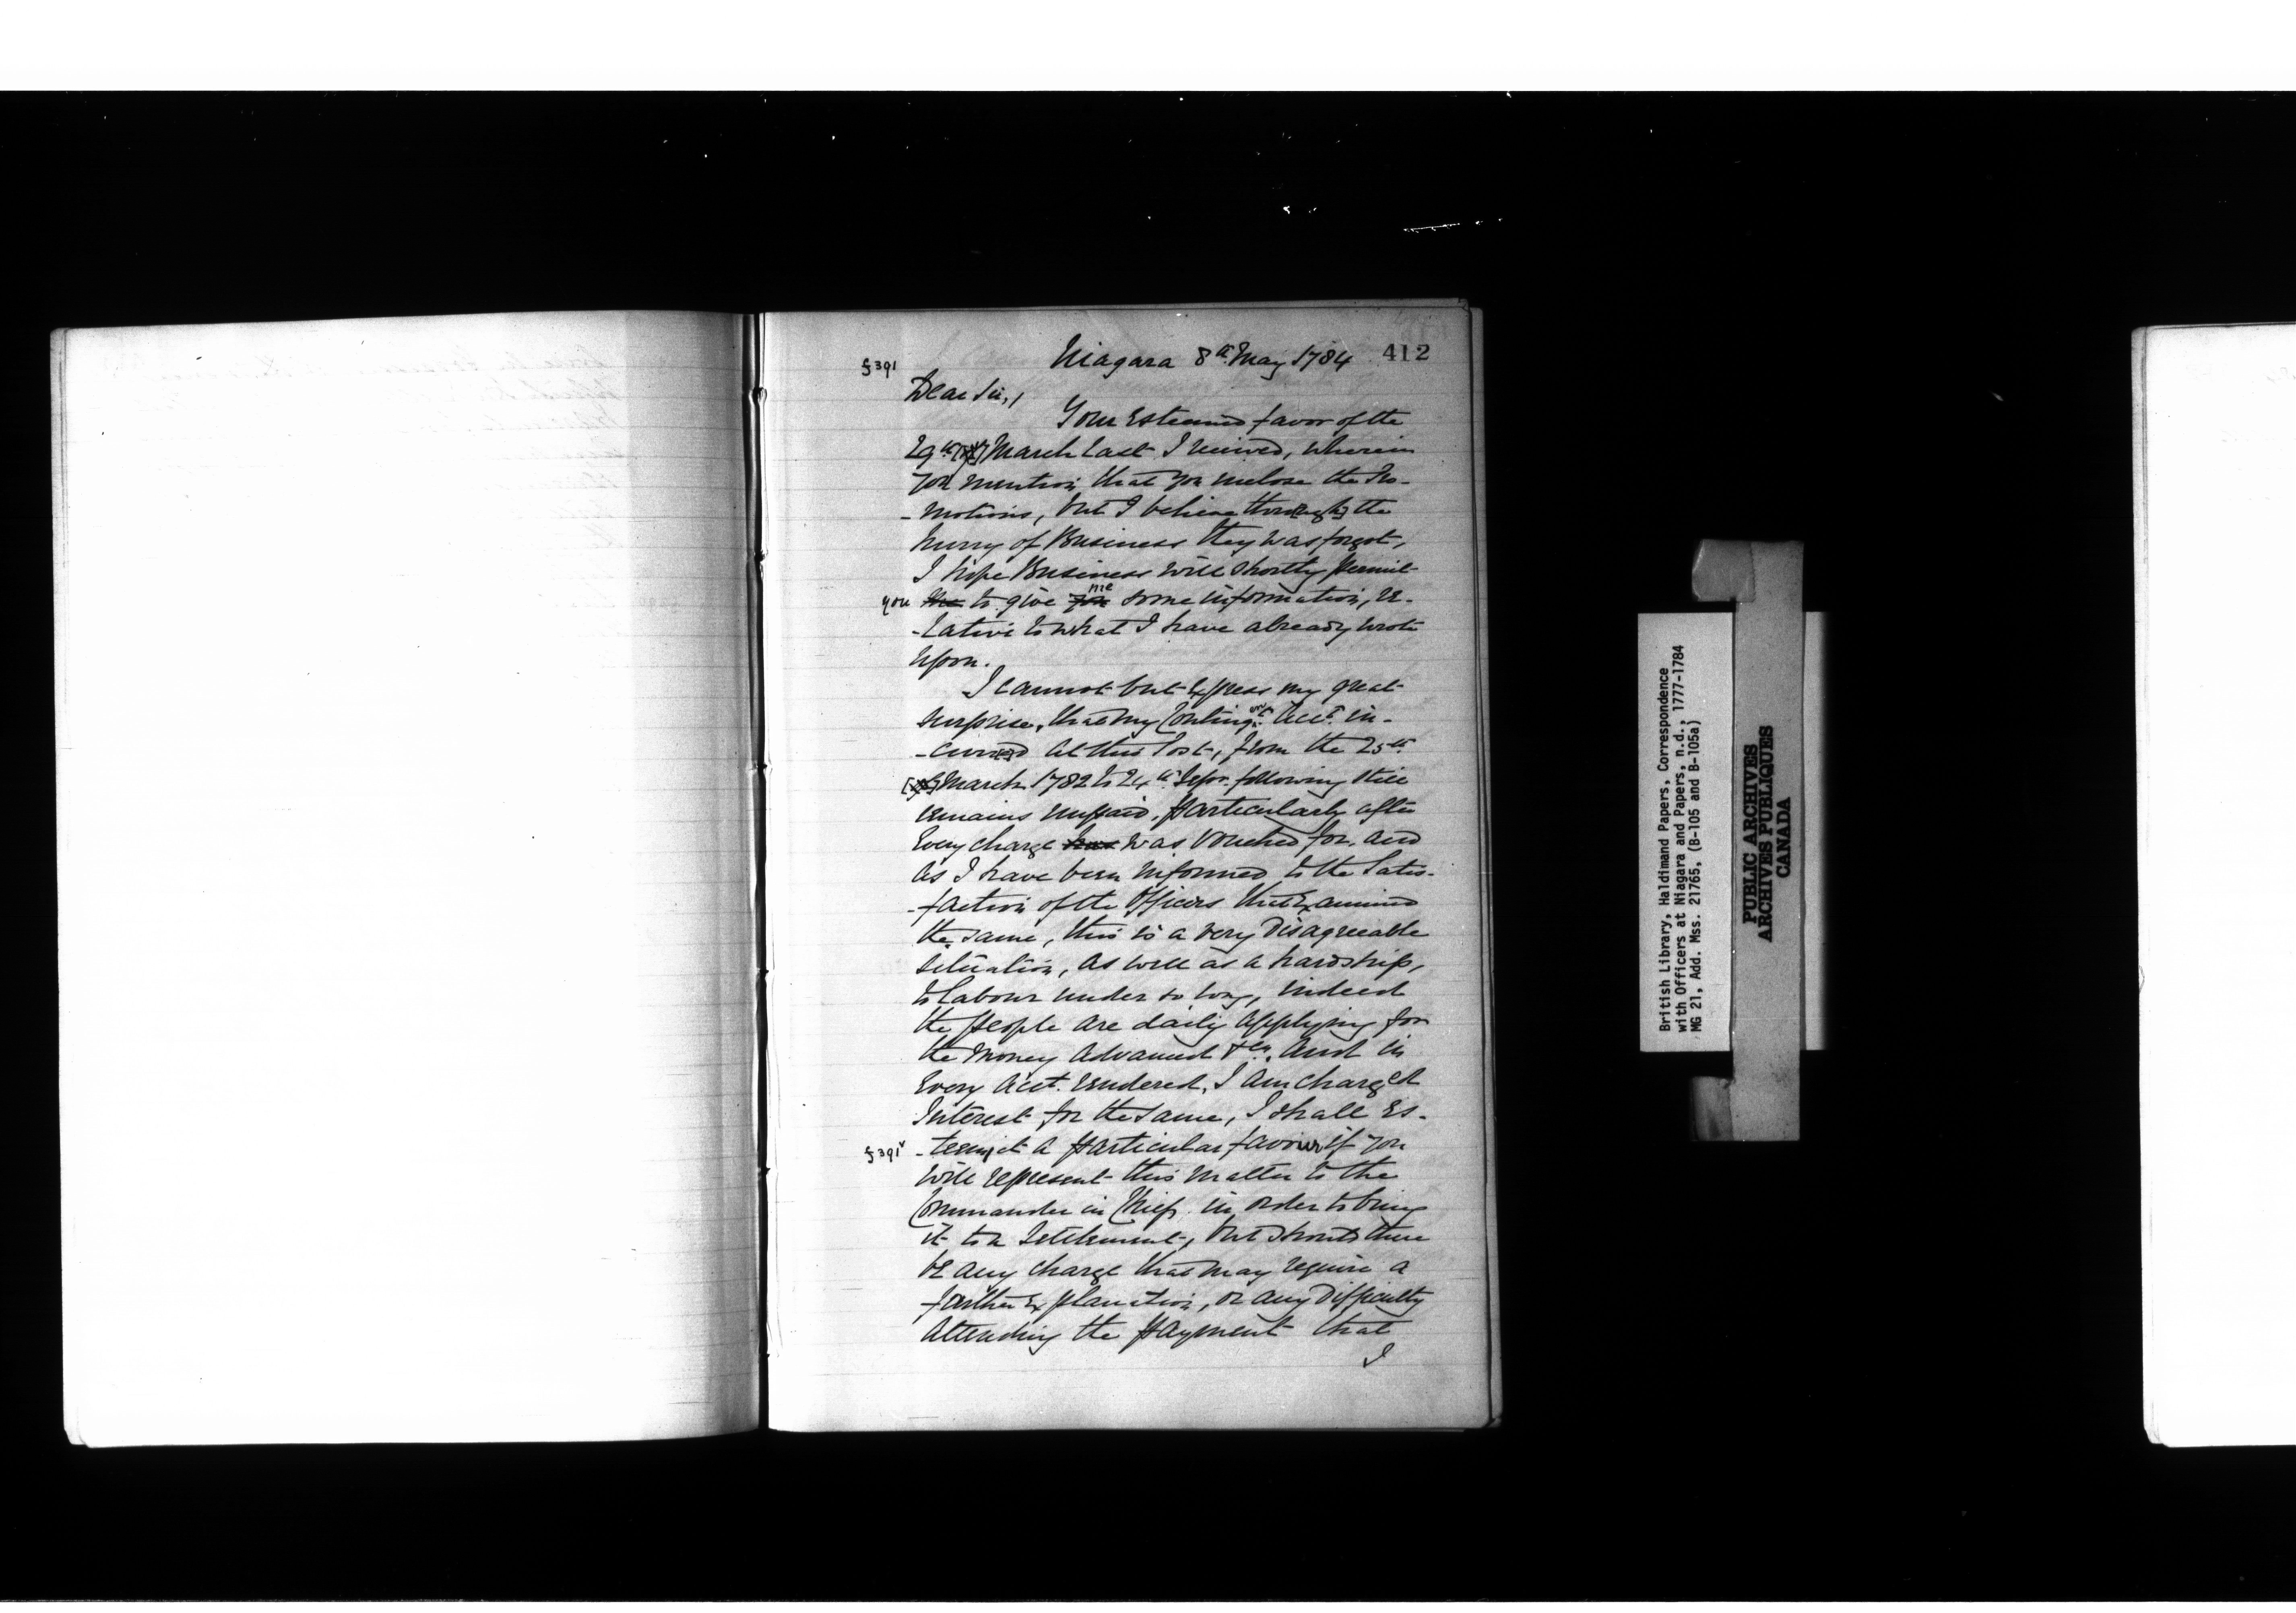 412
f 391
Niagara 8th. May 1784
Dear Sir,,
Your Esteemed favor of the
29th March Last I received, wherein
you mention that you enclose the Pro-
-motions, but I believe through the
hurry of Business they was forgot,
I hope Business will shortly permit
you to give me some information, re-
-lative to what I have already wrote
upon.
I cannot but Express my great
surprise, that my Conting. Acct. in-
-curred at this Post, from the 25th
March 1782 to 24th. Sepr. following still
remains unpaid, particularly after
Every charge was vouched for, and
as I have been informed to the Satis-
-faction of the Officers that Examined
the same, this is a very Disagreeable
situation, as well as a hardship,
to labour under so long, indeed
the people are daily applying for
the money advanced &ca. and in
Every Acct. rendered, I am charged
Interest for the same, I shall Es-
f 391v
-teem it a particular favour if you
will represent this matter to the
Commander in Chief in order to bring
it to a Settlement, but should there
be any charge that may require a
farther Explanation, or any Difficulty
attending the payment that
I
British Library, Haldimand Papers, Correspondence
with Officers at Niagara and Papers, n.d., 1777-1784
MG 21, Add. Mss. 21765, (B-105 and B-105a)
PUBLIC ARCHIVES
ARCHIVES PUBLIQUES
CANADA